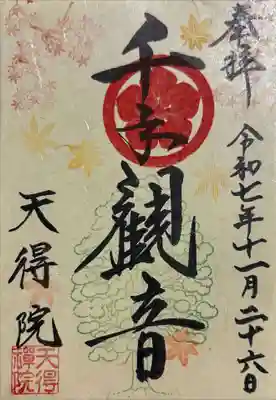 奉拝
令和七年十一月二十六日
千手観音
天得院
天得
禪院